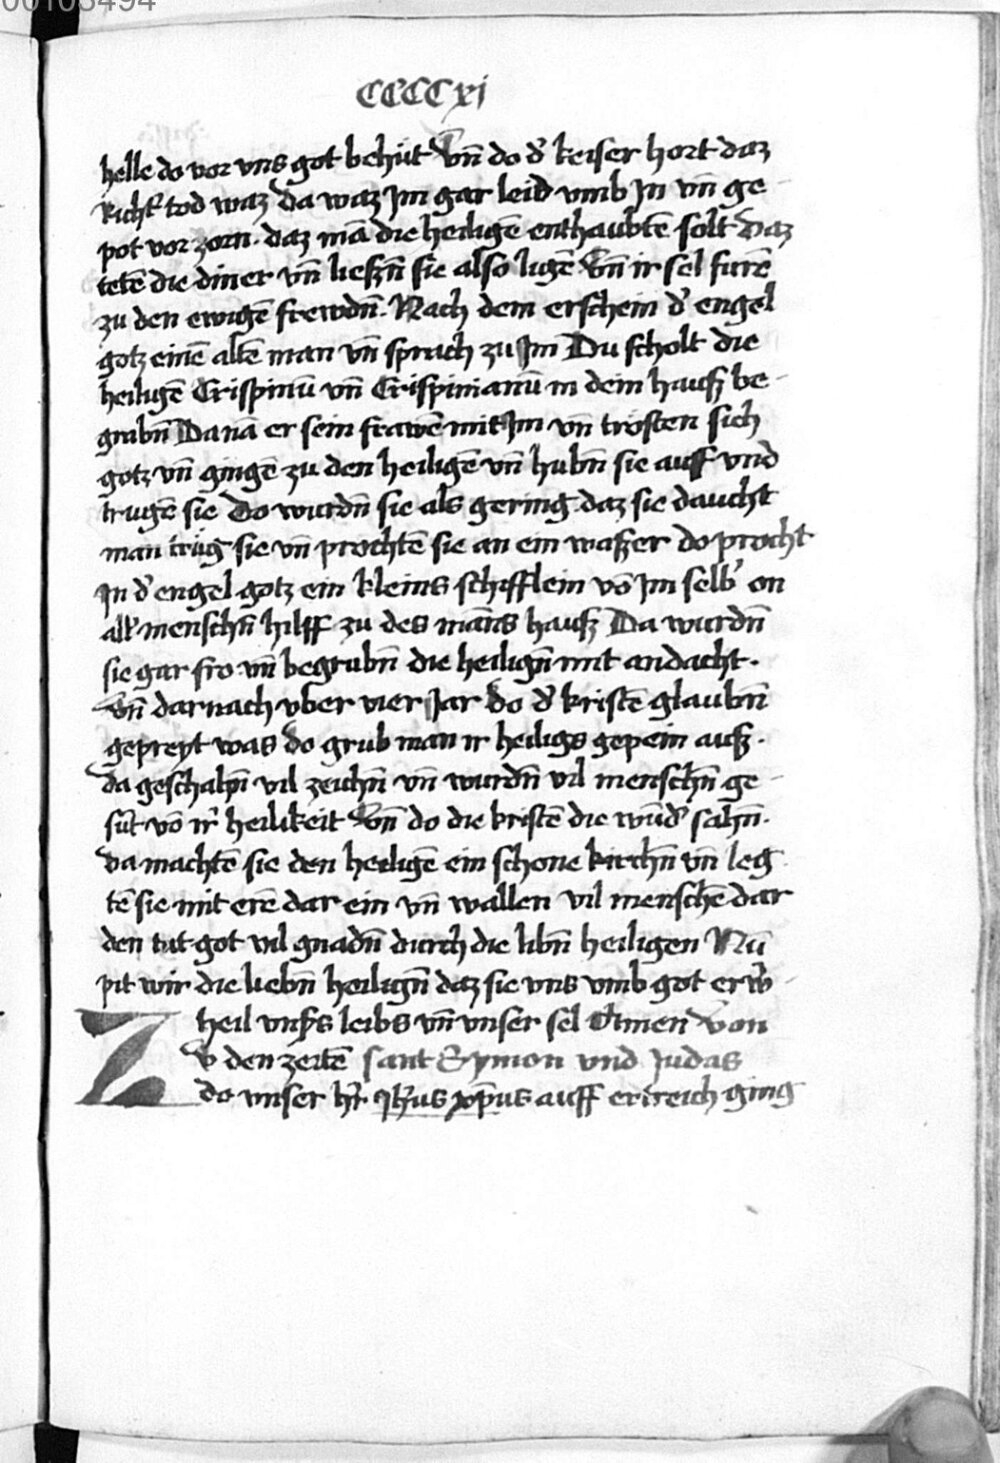 00103494
CCCCxi
helle do vor vns got behüt Vn̄ do d' keiser hort daz
Richt' tod waz da waz Jm gar leid vmb Jn vn̄ ge
pot vor zorn. daz mā die heiligē enthaubtē solt Daz
tetē die diner vn̄ lieszn̄ sie also ligē Vn̄ ir sel furē
zu den ewigē frewdn̄. Nach dem erschein d' engel
gotz einē altē man vn̄ sprach zu Jm Du scholt die
heiligē Crispinū vn̄ Crispinianū in dein hausz be
grabn̄ Da nā er sein frawē mit Jm vn̄ trösten sich
gotz vn̄ gingē zu den heiligē vn̄ hubn̄ sie auff vnd
trugē sie Do wurdn̄ sie als gering daz sie daucht
man trüg sie vn̄ prochtē sie an ein waszer do procht
Jn d' engel gotz ein kleins schifflein vō Jm selb' on
all' menschn̄ hilff zu des mans hausz Da wurdn̄
sie gar fro vn̄ begrubn̄ die heilign̄ mit andacht.
Vn̄ darnach vber vier Jar do d' kristē glaubn̄
gepreyt was do grub man ir heiligs gepein ausz.
da geschahn̄ vil zeichn̄ vn̄ wurdn̄ vil menschn̄ ge
sūt vō ir' heilikeit Vn̄ do die kristē die wūd' sahn̄.
da machtē sie den heiligē ein schone kirchn̄ vn̄ leg
tē sie mit erē dar ein vn̄ wallen vil menschē dar
den tut got vil gnadn̄ durch die libn̄ heiligen Nū
pit wir die liebn̄ heilign̄ daz sie vns vmb got erw̄
heil vnsers leibs vn̄ vnser sel Amen Von
Zv den zeitē sant Symon vnd Judas
do vnser hr̄ Jhūs xp̄us auff ertreich ging